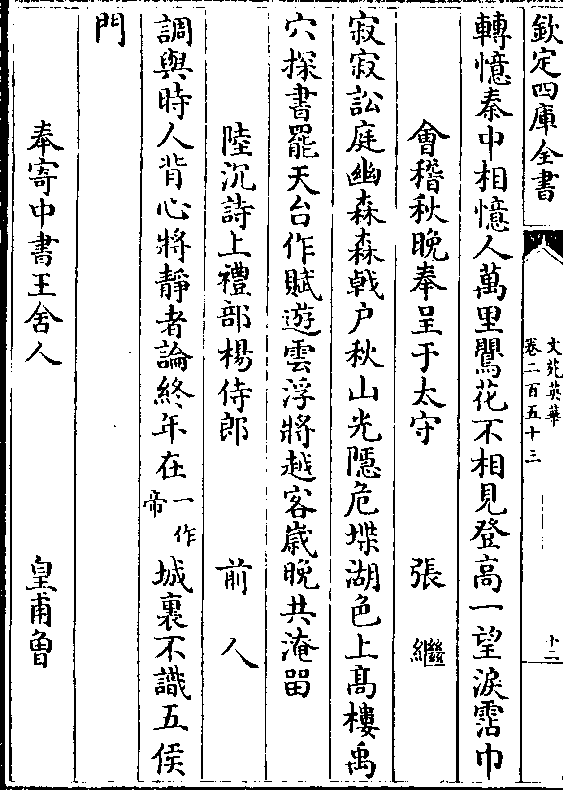 欽定四庫全書
文苑英華
卷二百五十三
十二
轉憶秦中相憶人萬里鶯花不相見登高一望淚霑巾
會稽秋晚奉呈于太守 張繼
寂寂訟庭幽森森戟户秋山光隠危堞湖色上髙樓禹
穴探書罷天台作賦遊雲浮將越客嵗晚共淹畱
陸沉詩上禮部楊侍郎 前人
調與時人背心將靜者論終年在一作帝城裏不識五侯
門
奉寄中書王舍人 皇甫曾